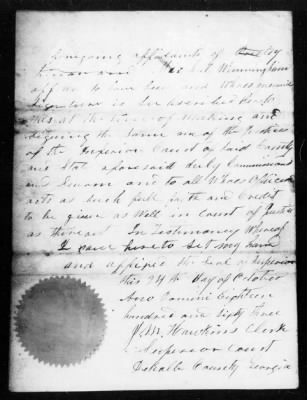 foregoing affidavits of
and Winningham
and whose name
is
this at the time of making and
signing the same one of the Justices
of the Inferior Court of Said County
and State aforesaid duly Commissioned
and Sworn and to all Whose Official
acts as Such full faith and Credit
to be given as Well in Court of Justice
as thereout In Testimony Whereof
I have hereto Set my hand
and affixed the Seal of
this 24th day of October
Domini Eighteen
hundred and Sixty three
Hawkins Clerk
Superior Court
DeKalb County Georgia